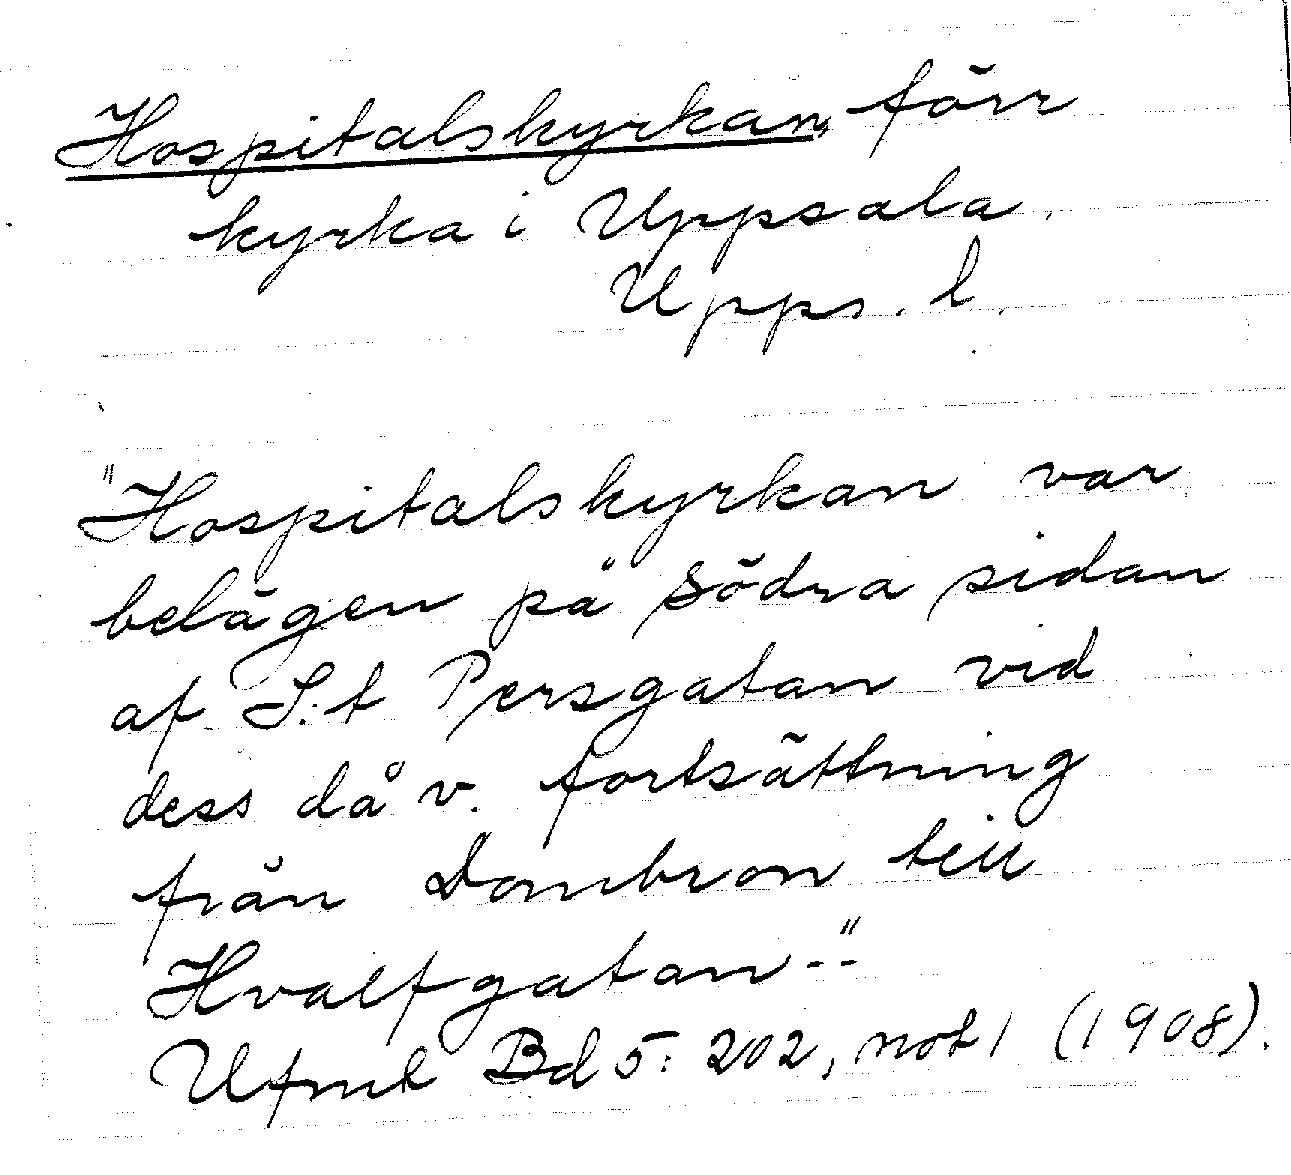 Hospitalskyrkan, förr
kyrka i Uppsala.
Upps. l.
"Hospitalskyrkan var
belägen på södra sidan
af S:t Persgatan vid
dess då v. fortsättning
från Dombron till
Hvalfgatan--"
Ufmt Bd 5: 202, not 1 (1908).